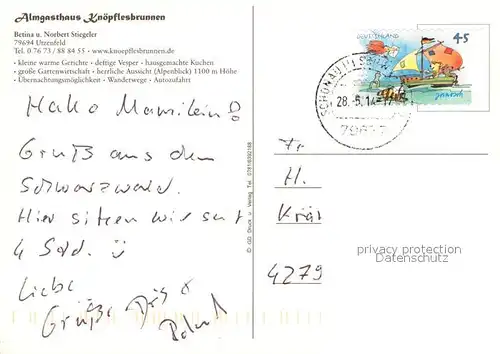 Almgasthaus Knöpflesbrunnen
Betina u. Norbert Stiegeler
79694 Utzenfeld
Tel. 0 76 73 / 88 84 55 – www.knoepflesbrunnen.de
• kleine warme Gerichte • deftige Vesper • hausgemachte Kuchen
• große Gartenwirtschaft • herrliche Aussicht (Alpenblick) 1100 m Höhe
• Übernachtungsmöglichkeit • Wanderwege • Autozufahrt
Hallo
Gruß aus dem
Schwarzwald.
Hier sitzen wir seit
4 Std.
Liebe
Grüße
© GD Druck u. Verlag Tel. 0781/6392188
DEUTSCHLAND
45
janosch
SCHÖNAU
28.-5.14-17
79677
Fr.
H.
4279
privacy protection
Datenschutz